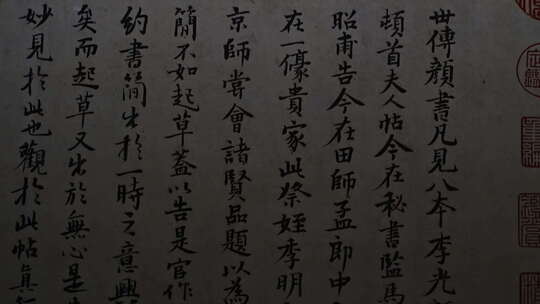 世傳顏書凡見八本李光
頓首夫人帖今在秘書監馬
昭甫告今在田師孟郎中
在一豪貴家此祭姪季明
京師嘗會諸賢品題以為
簡不如起草蓋以告是官作
約書簡出於一時之意興
矣而起草又出於無心是
妙見於此也觀於此帖真